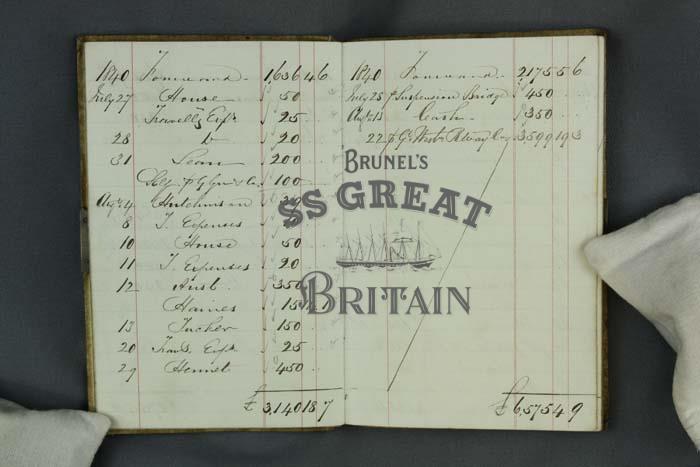 1840 Forward 1,636 4 6
July 27 House 50
Travellg Exps 25
28 Do 20
31 Sean 200
100
Augt 4 Hutchinson
8 T. Expenses
10 House 50
11 T. Expenses 20
12 Aust 350
Haines 15 14 1
13 Tucker 150
20 Trav. Exps 25
29 Hennet 450
£ 3,140 18 7
1840 Forward 2175 5 6
July 28 p Suspension Bridge 450
Augt 13 Cash 350
22 p Gt Westn Railway Coy 3599 19 3
£ 6,575 4 9
BRUNEL'S
SS GREAT
BRITAIN